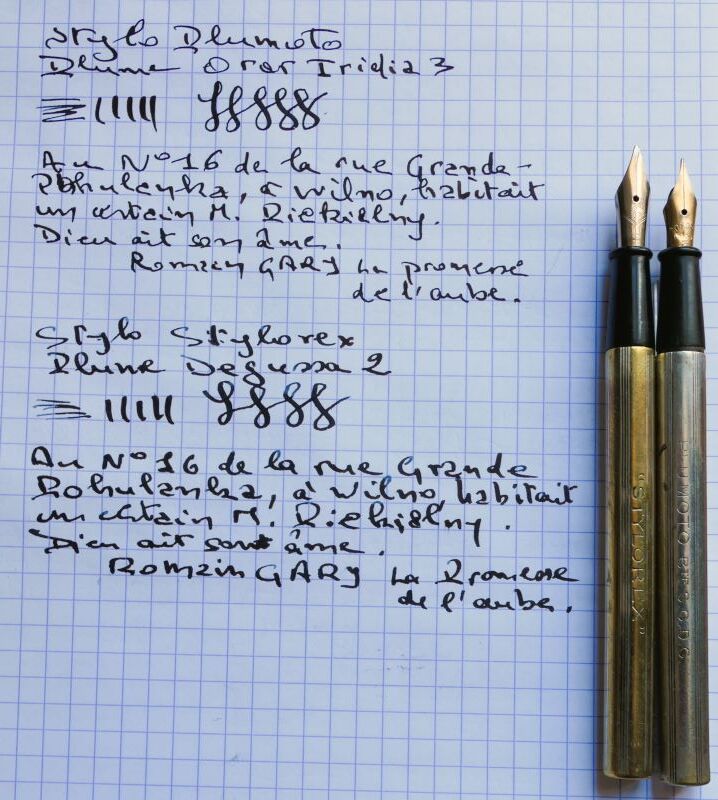 Stylo Plumoto
Plume Oror Iridia 3
Au N° 16 de la rue Grande-
Pohulanka, à Wilno, habitait
un certain M. Piekielny.
Dieu ait son âme.
Romain GARY La promesse
de l'aube.
Stylo Stylorex
Plume Degussa 2
Au N° 16 de la rue Grande
Pohulanka, à Wilno, habitait
un certain M. Piekielny.
Dieu ait son âme.
Romain GARY La Promesse
de l'aube.
"STYLOREX"
PLUMOTO B.té S.G.D.G